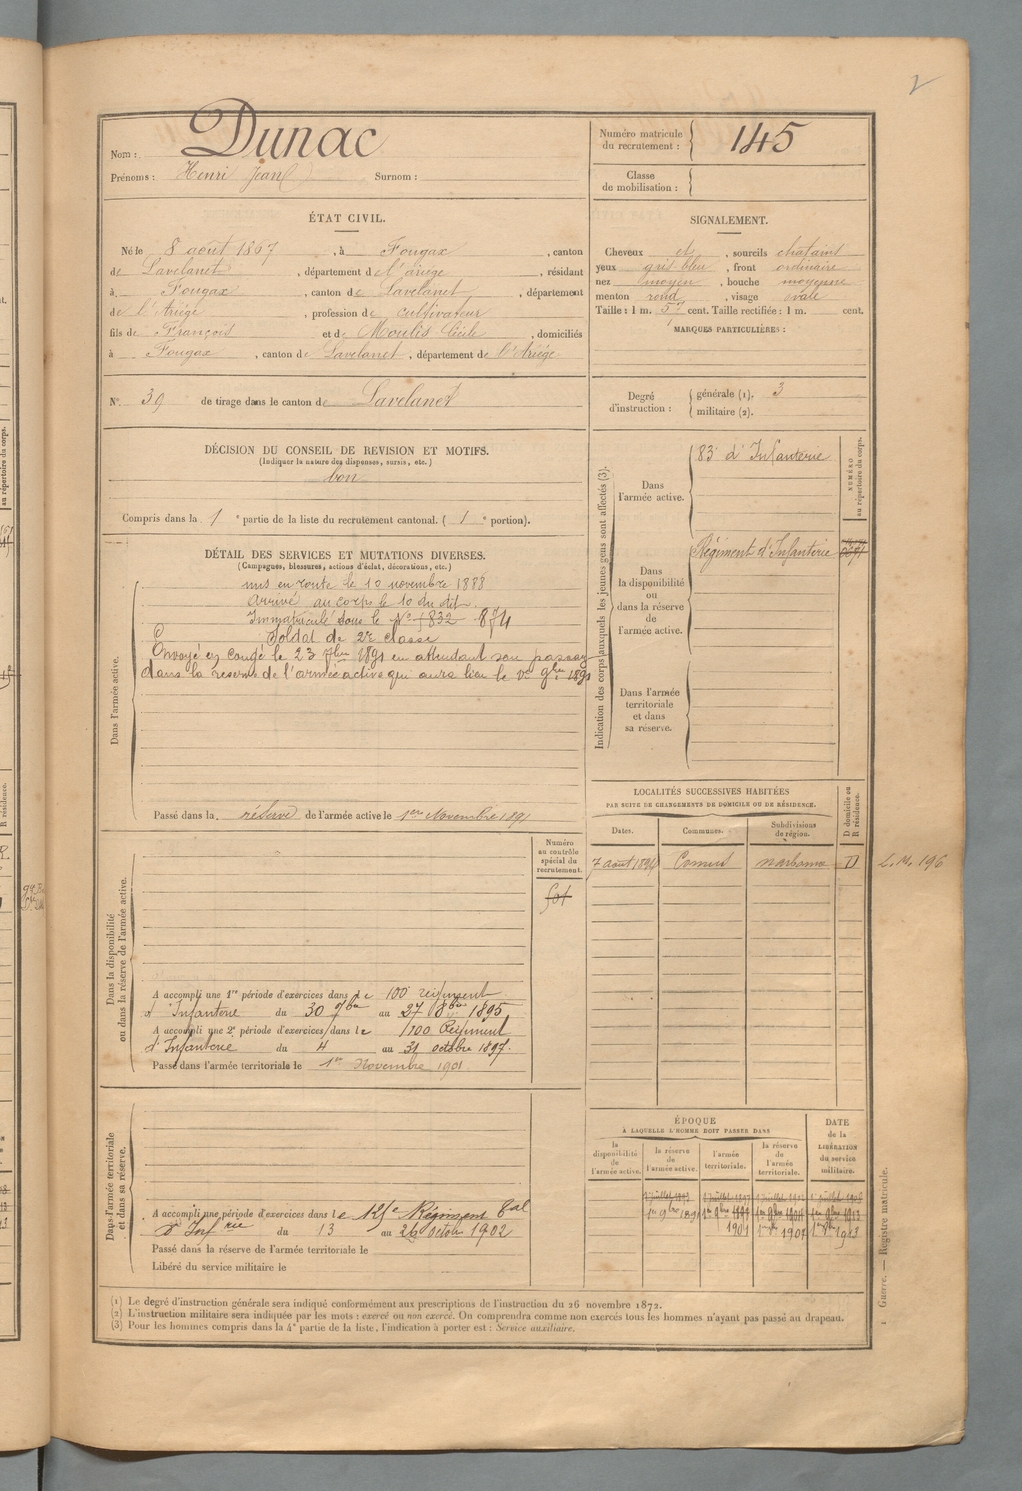 2
Dunac
Nom :
Prénoms : Henri Jean Surnom :
Numéro matricule du recrutement : 145
Classe de mobilisation :
ÉTAT CIVIL.
Né le 8 août 1867, à Fougax, canton
de Lavelanet, département de l'ariège, résidant
à Fougax, canton de Lavelanet, département
de l'Ariège, profession de cultivateur
fils de François et de Moulis Cécile, domiciliés
à Fougax, canton de Lavelanet, département de l'Ariége
N° 39 de tirage dans le canton de Lavelanet
SIGNALEMENT.
Cheveux et, sourcils chatains
yeux gris bleu, front ordinaire
nez moyen, bouche moyenne
menton rond, visage ovale
Taille : 1 m. 57 cent. Taille rectifiée : 1 m. cent.
MARQUES PARTICULIÈRES :
Degré d'instruction : générale (1). 3
militaire (2).
DÉCISION DU CONSEIL DE REVISION ET MOTIFS.
(Indiquer la nature des dispenses, sursis, etc.)
bon
Compris dans la 1e partie de la liste du recrutement cantonal. ( 1e portion).
DÉTAIL DES SERVICES ET MUTATIONS DIVERSES.
(Campagnes, blessures, actions d'éclat, décorations, etc.)
Dans l'armée active.
mis en route le 10 novembre 1888
Arrivé au corps le 10 du dit
Immatriculé sous le N° 874
Soldat de 2e classe
Envoyé en congé le 23 7bre 1891 en attendant son passage
dans la réserve de l'armée active qui aura lieu le 1er 9bre 1891
Passé dans la réserve de l'armée active le 1er Novembre 1891
Indication des corps auxquels les jeunes gens sont affectés (3).
NUMÉRO au répertoire du corps.
Dans l'armée active.
83e d'Infanterie
Dans la disponibilité ou dans la réserve de l'armée active.
Régiment d'Infanterie
Dans l'armée territoriale et dans sa réserve.
LOCALITÉS SUCCESSIVES HABITÉES
PAR SUITE DE CHANGEMENTS DE DOMICILE OU DE RÉSIDENCE.
D domicile ou R résidence.
Dates. Communes. Subdivisions de région.
7 août 1894 Comus narbonne D
L. M. 196
Dans la disponibilité ou dans la réserve de l'armée active.
Numéro au contrôle spécial du recrutement.
A accompli une 1re période d'exercices dans le 100e régiment
d'Infanterie du 30 7bre au 27 8bre 1895
A accompli une 2e période d'exercices dans le 100 Régiment
d'Infanterie du 4 au 31 octobre 1897.
Passé dans l'armée territoriale le 1er Novembre 1901
Dans l'armée territoriale et dans sa réserve.
A accompli une période d'exercices dans le Régiment Tal
d'Infrie du 13 au 26 octobre 1902
Passé dans la réserve de l'armée territoriale le
Libéré du service militaire le
ÉPOQUE
À LAQUELLE L'HOMME DOIT PASSER DANS
la disponibilité de l'armée active.
la réserve de l'armée active.
l'armée territoriale.
la réserve de l'armée territoriale.
DATE de la LIBÉRATION du service militaire.
1er 9bre 1891
1901 1907 1913
(1) Le degré d'instruction générale sera indiqué conformément aux prescriptions de l'instruction du 26 novembre 1872.
(2) L'instruction militaire sera indiquée par les mots : exercé ou non exercé. On comprendra comme non exercés tous les hommes n'ayant pas passé au drapeau.
(3) Pour les hommes compris dans la 4e partie de la liste, l'indication à porter est : Service auxiliaire.
1 Guerre. — Registre matricule.